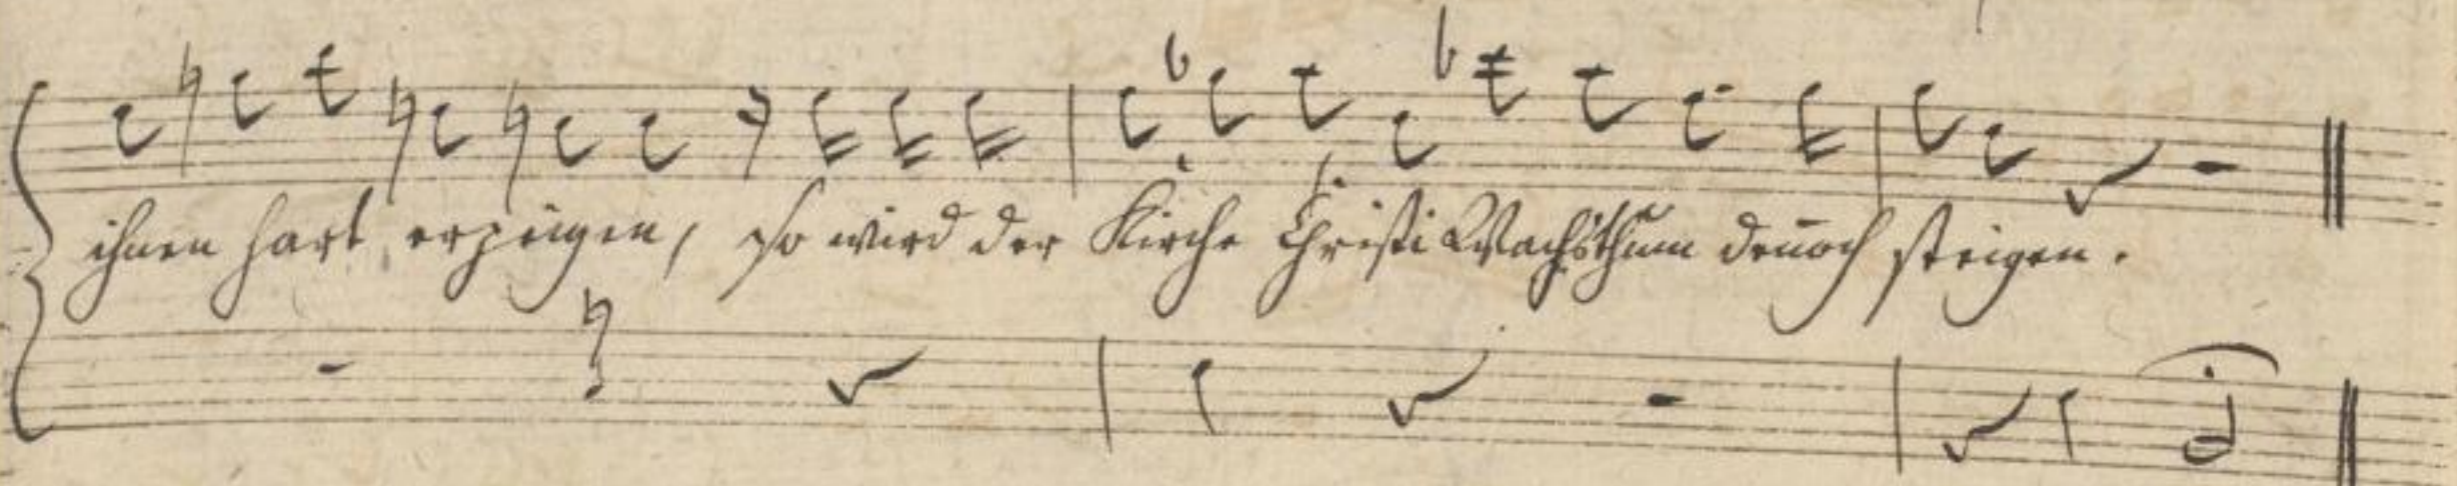 ihnen hart erzeigen, so wird der Kirche Christi Wachsthum dēnoch steigen.